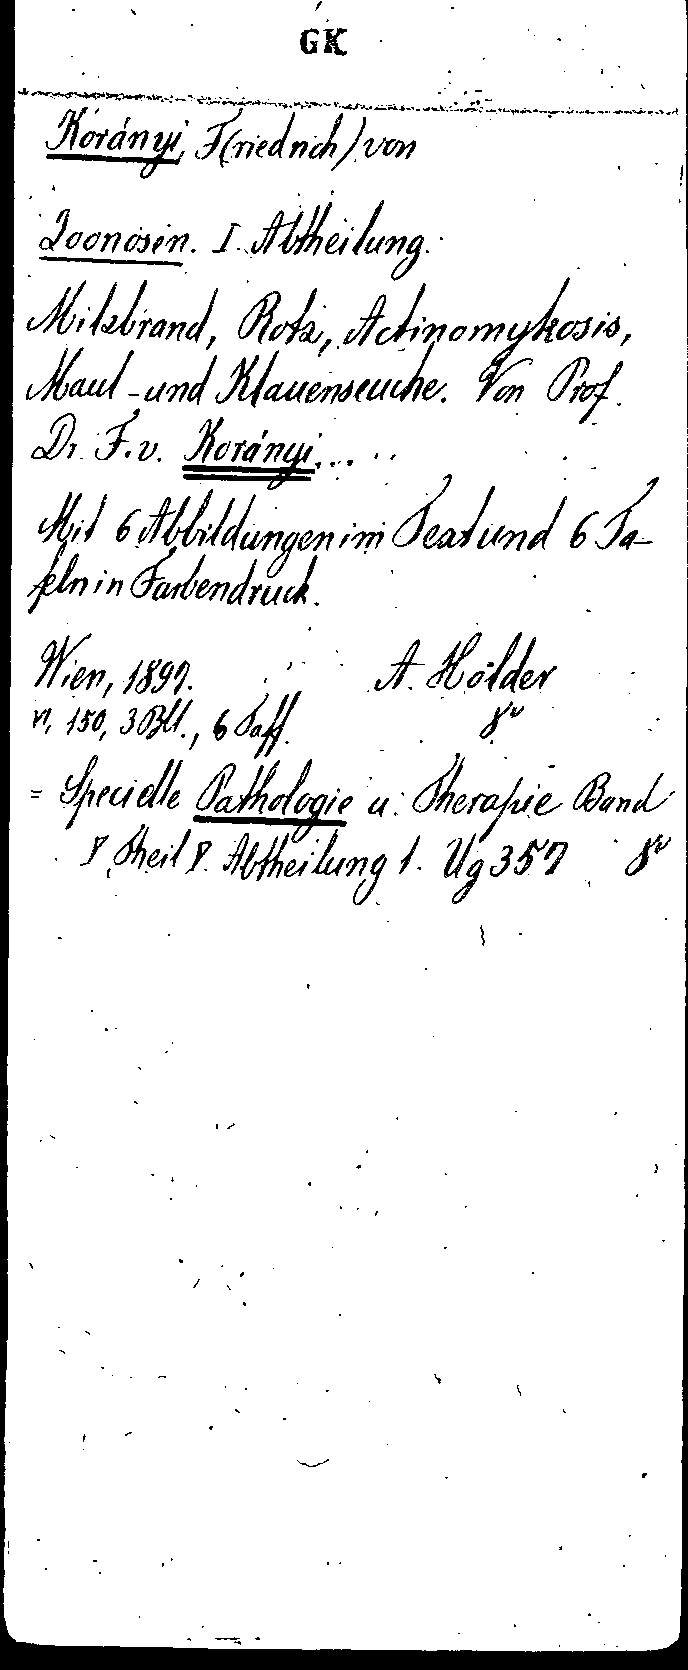 GK
Korányi, F(riedrich) von
Zoonosen. I. Abtheilung.
Milzbrand, Rotz, Actinomykosis,
Maul- und Klauenseuche. Von Prof.
Dr. F. v. Korányi...
Mit 6 Abbildungen im Text und 6 Ta-
feln in Farbendruck.
Wien, 1897. A. Hölder
VI, 150, 3 Bll., 6 Taff. 8°
= Specielle Pathologie u. Therapie Band
V, Theil V. Abtheilung 1. Ug 357 8°